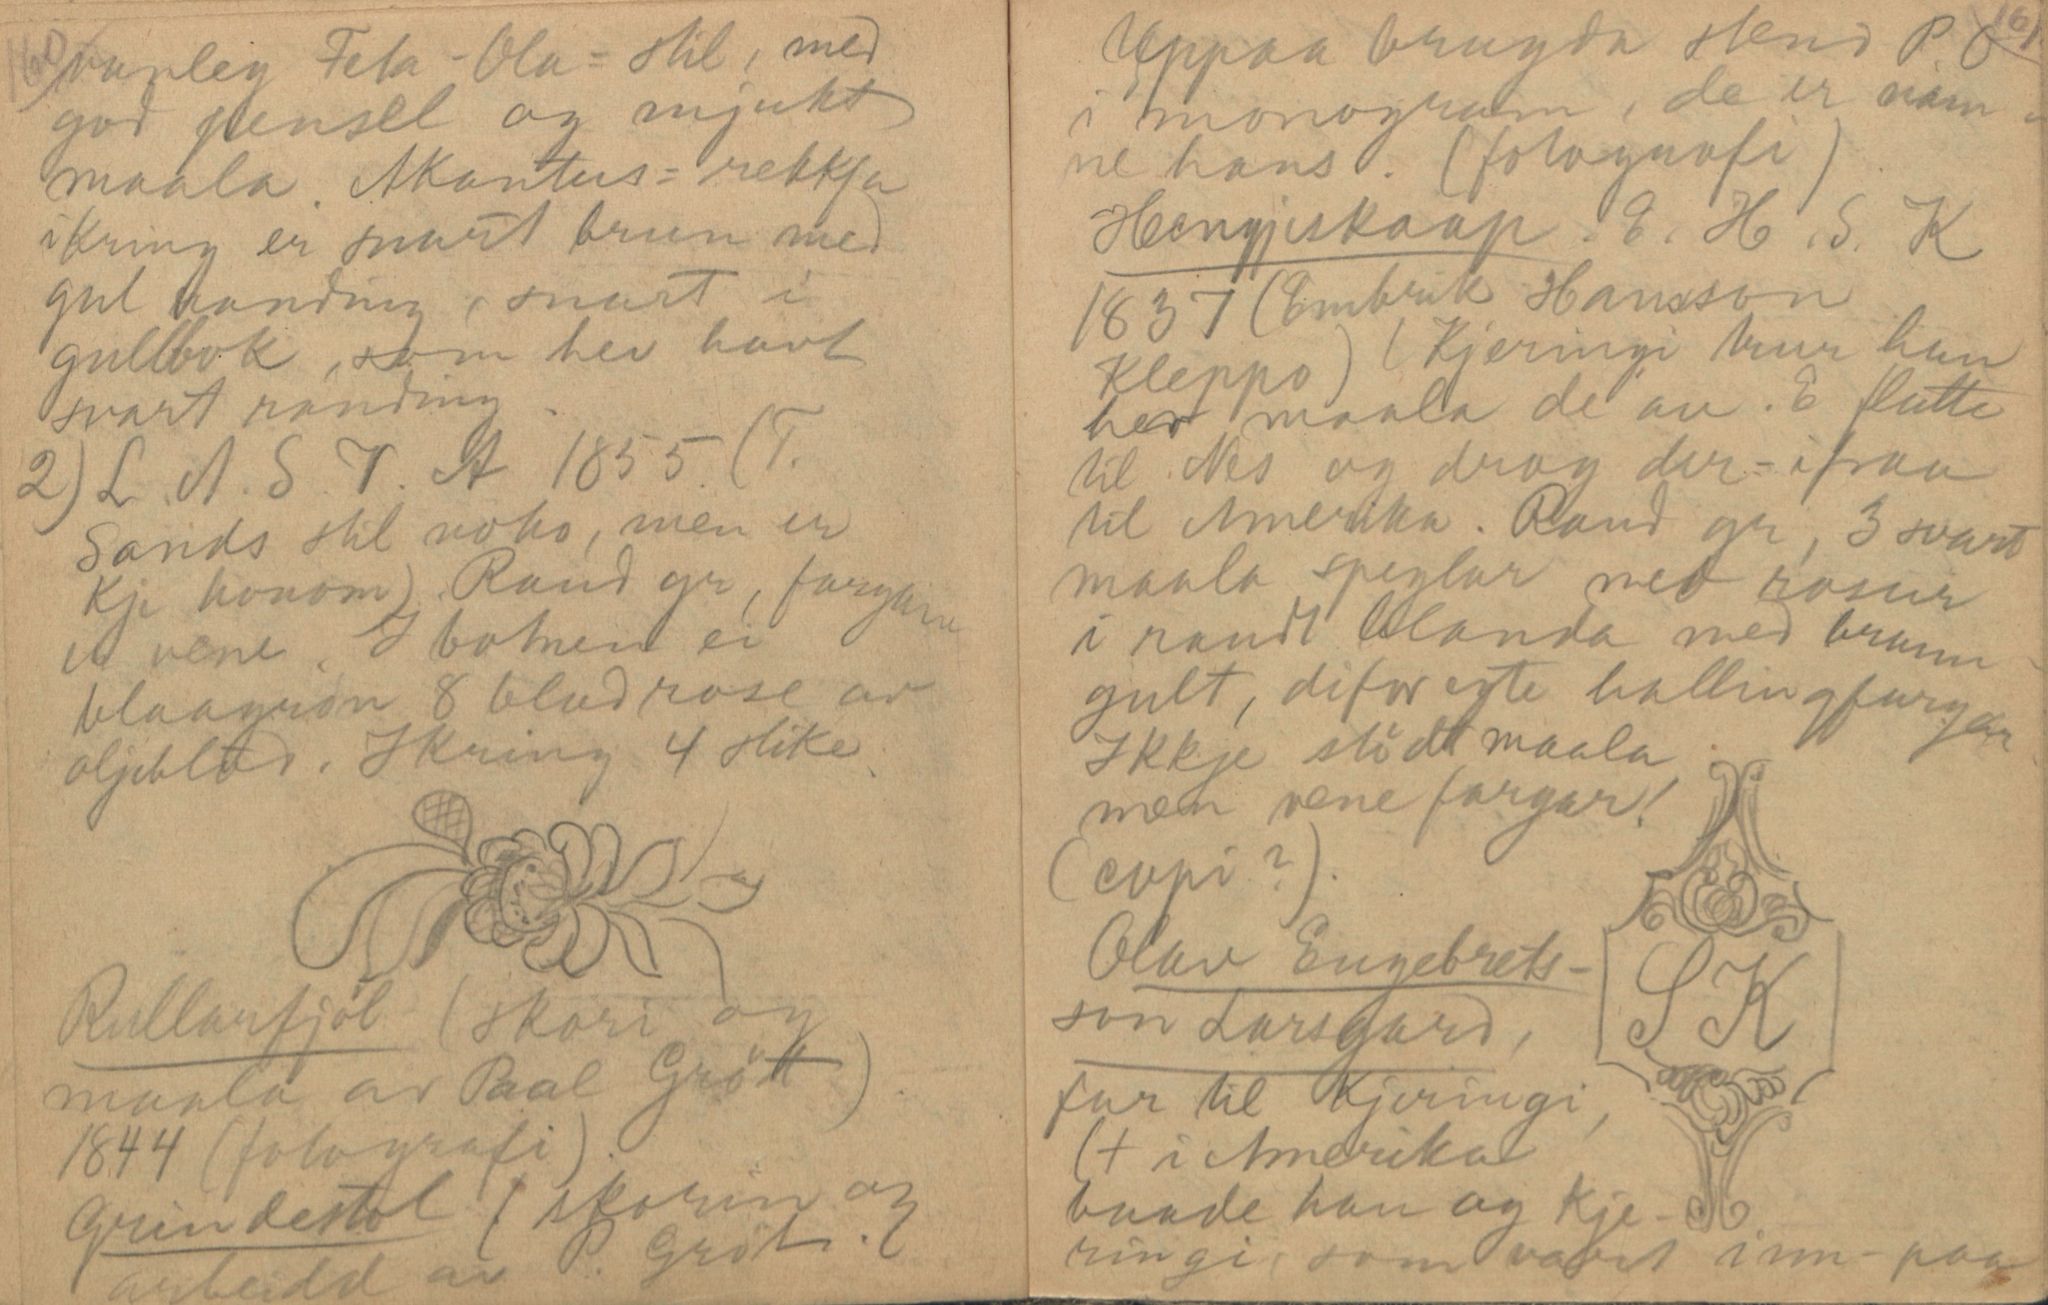 160
vanleg Feta-Ola=stil, med
god pensel og mjukt
maala. Akantus=rekkja
ikring er snart brun med
gul randing, snart i
gullbok, som hev havt
svart randing.
2) L. A. S. V. A 1855. (T.
Sands stil noko, men er
kje honom). Raud gr, fargane
er vene. I botnen ei
blaagrön 8 blad rose av
oljeblad. Ikring 4 slike.
Rullarfjöl (skori og
maala av Paal Grött)
1844 (fotografi).
Grindestol (skorin og
arbeidd av P. Gröt.)
161
Uppaa brugda stend P. G
i monogram, de er nam-
ne hans. (fotografi).
Hengjeskaap. E. H. S. K
1837 (Embrik Hansson
Kleppo) (Kjeringi trur han
hev maala de au. E flutte
til Nes og drog der=ifraa
til Amerika. Raud gr, 3 svart
maala speglar med rosur
i raudt blanda med brunn-
gult, difor egte hallingfargar.
Ikkje stödt maala,
men vene fargar!
(copi?).
Olav Engebrets-
son Larsgard,
far til Kjeringi,
(+ i Amerika
baade han og Kje-
ringi, som vart inn-paa
S K